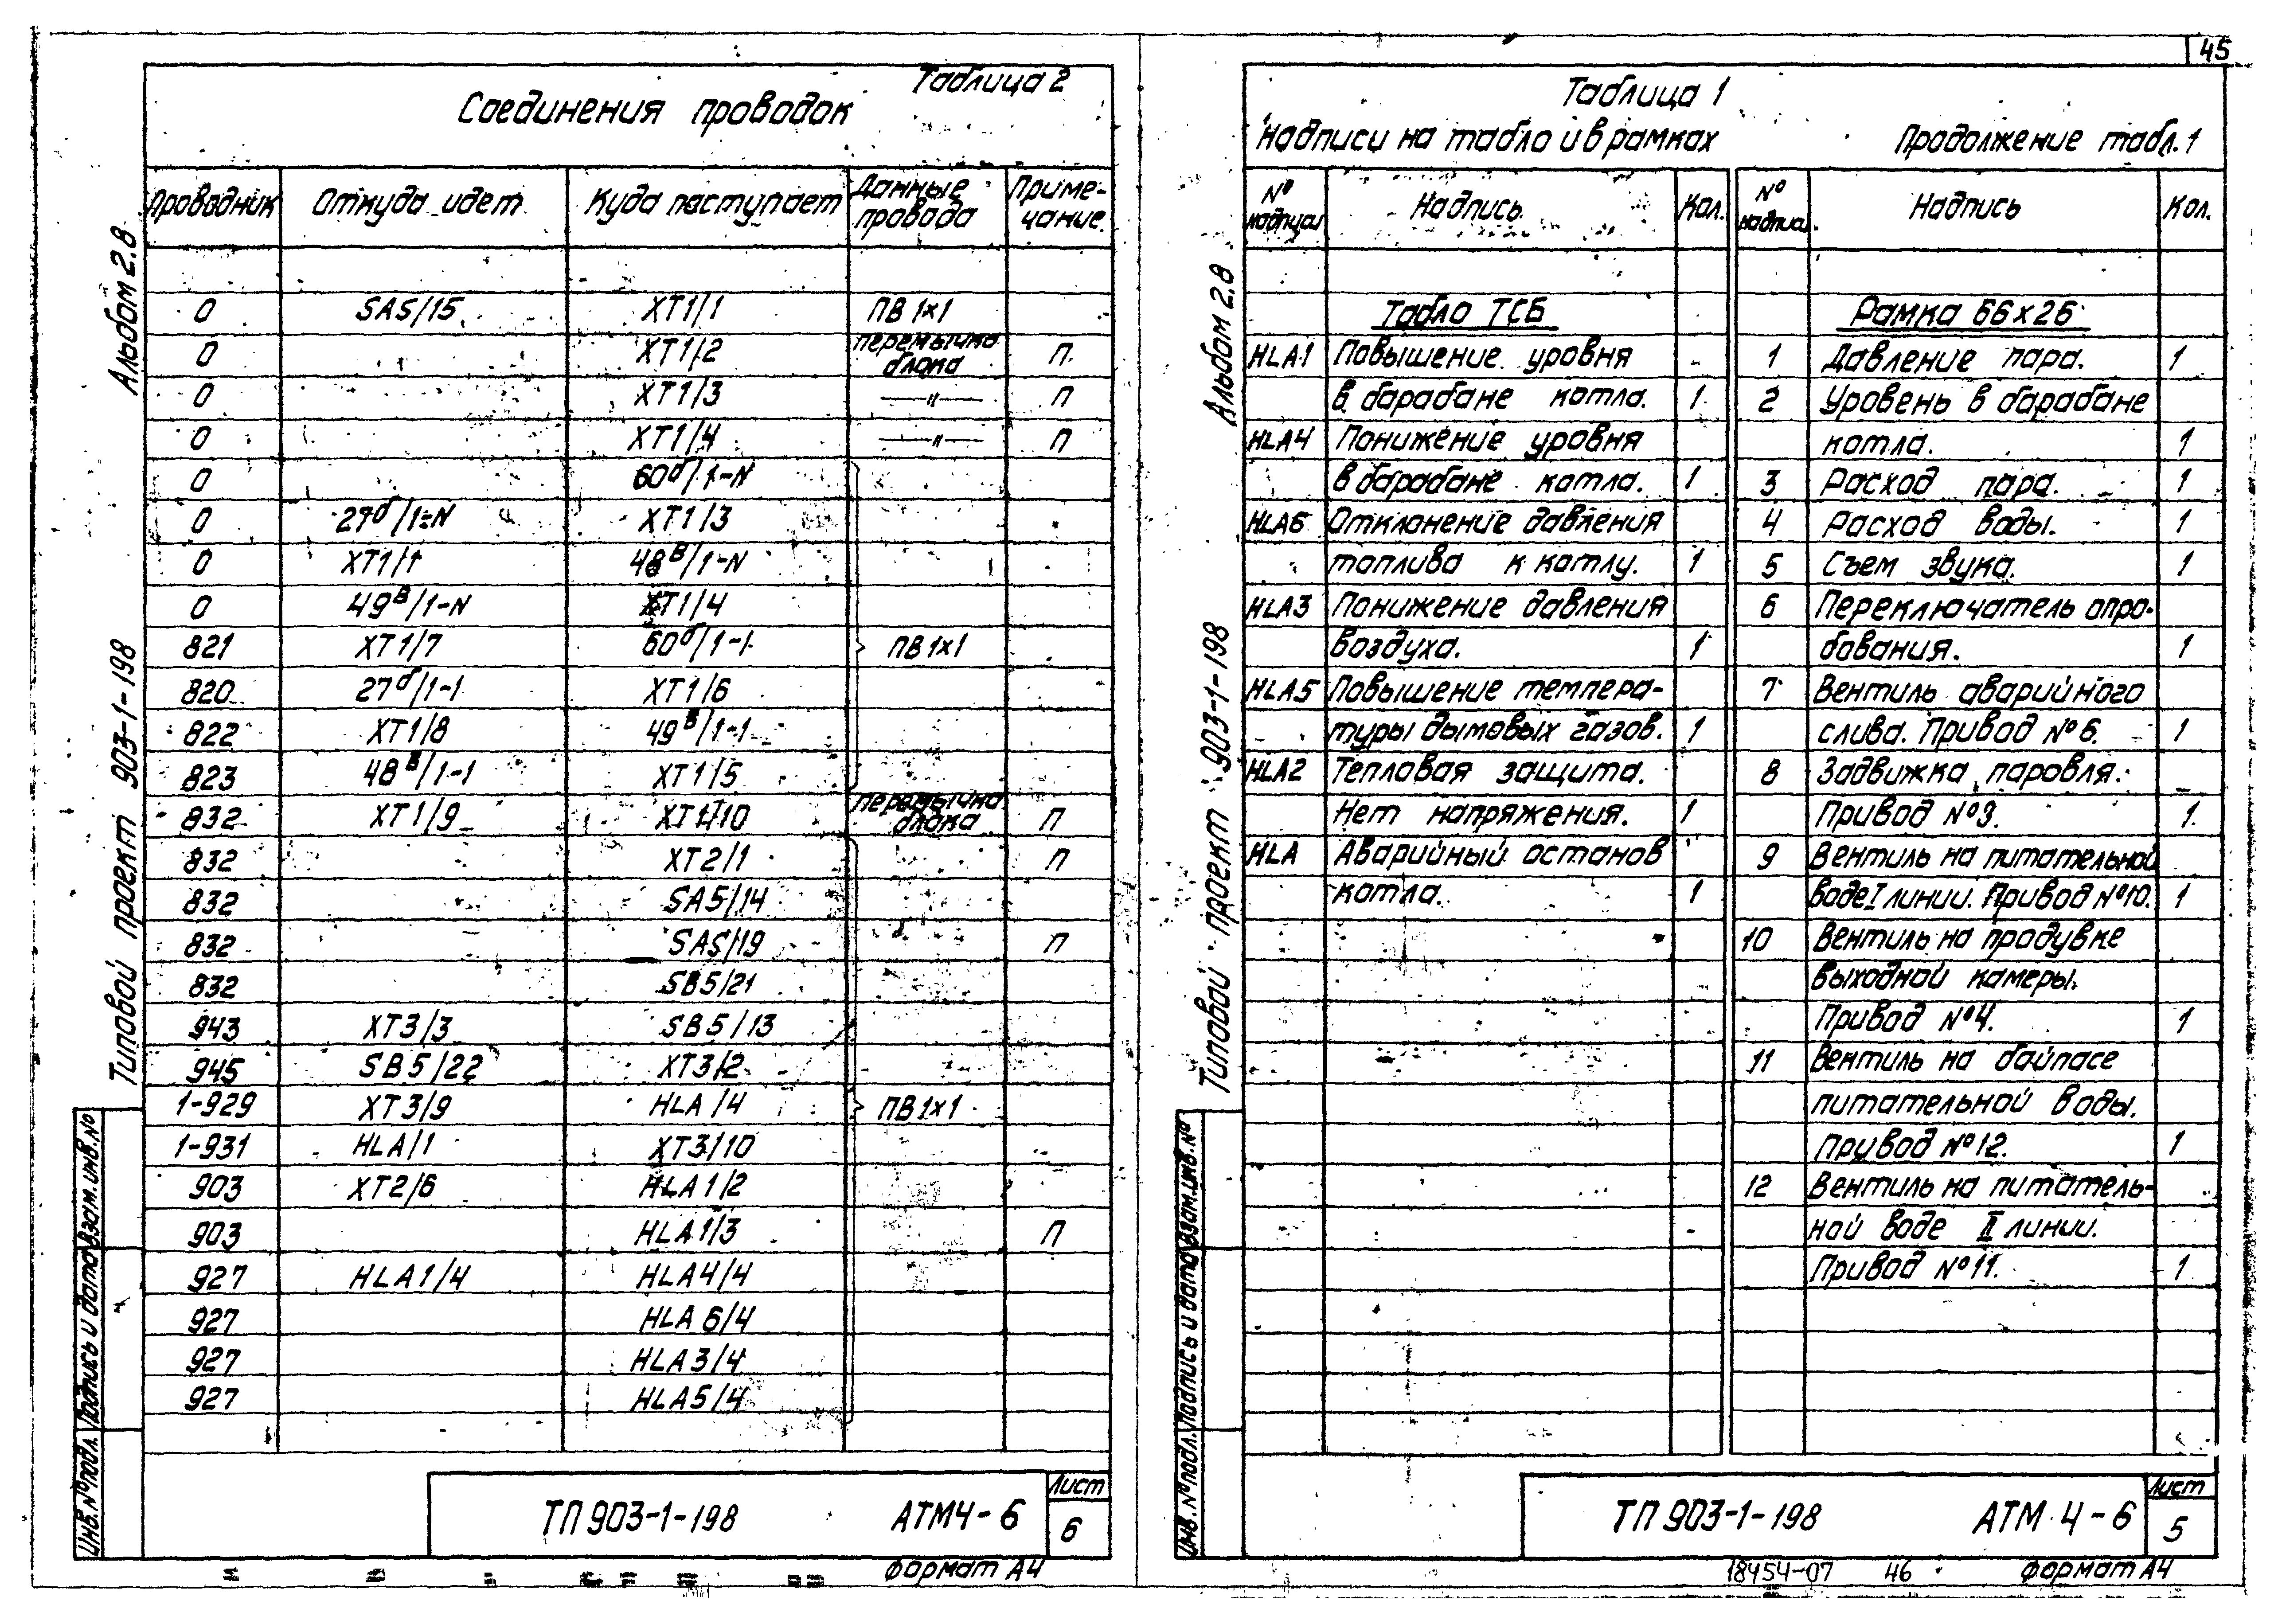 45
Таблица 2
Соединения проводок
Проводник Откуда идет Куда поступает Данные провода Приме-чание
0 SA5/15 XT1/1 ПВ 1х1
0 XT1/2 перемычка блока П
0 XT1/3 —"— П
0 XT1/4 —"— П
0 60б/1-N
0 27б/1-N XT1/3
0 XT1/1 48в/1-N
0 49в/1-N XT1/4
821 XT1/7 60б/1-1 ПВ 1х1
820 27б/1-1 XT1/6
822 XT1/8 49в/1-1
823 48в/1-1 XT1/5
832 XT1/9 XT1/10 перемычка блока П
832 XT2/1 П
832 SA5/14
832 SA5/19 П
832 SB5/21
943 XT3/3 SB5/13
945 SB5/22 XT3/2
1-929 XT3/9 HLA/4 ПВ 1х1
1-931 HLA/1 XT3/10
903 XT2/6 HLA1/2
903 HLA1/3 П
927 HLA1/4 HLA4/4
927 HLA6/4
927 HLA3/4
927 HLA5/4
ТП 903-1-198 АТМ4-6
Лист
6
Формат А4
Альбом 2.8
Типовой проект 903-1-198
Взам.инв.№
Подпись и дата
Инв.№ подл.
Таблица 1
Надписи на табло и в рамках Продолжение табл.1
№ надписи Надпись Кол. № надписи Надпись Кол.
Табло ТСБ Рамка 66х26
HLA1 Повышение уровня 1 Давление пара. 1
в барабане котла. 1 2 Уровень в барабане
HLA4 Понижение уровня котла. 1
в барабане котла. 1 3 Расход пара. 1
HLA6 Отклонение давления 4 Расход воды. 1
топлива к котлу. 1 5 Съем звука. 1
HLA3 Понижение давления 6 Переключатель опро-
воздуха. 1 бования. 1
HLA5 Повышение темпера- 7 Вентиль аварийного
туры дымовых газов. 1 слива. Привод №6. 1
HLA2 Тепловая защита. 8 Задвижка паровля.
Нет напряжения. 1 Привод №9. 1
HLA Аварийный останов 9 Вентиль на питательной
котла. 1 воде I линии. Привод №10. 1
10 Вентиль на продувке
выходной камеры.
Привод №4. 1
11 Вентиль на байпасе
питательной воды.
Привод №12. 1
12 Вентиль на питатель-
ной воде II линии.
Привод №11. 1
ТП 903-1-198 АТМ 4-6
Лист
5
18454-07 46 Формат А4
Альбом 2.8
Типовой проект 903-1-198
Взам.инв.№
Подпись и дата
Инв.№ подл.